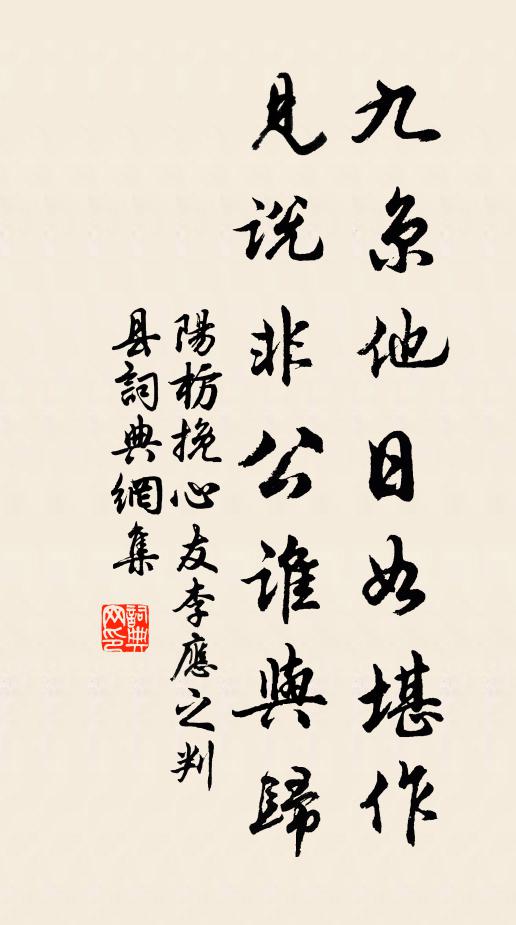 九京他日如堪作
見説非公誰與歸
陽枋挽心友李應之判
县詞典網集
詞典
网印